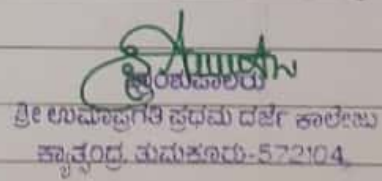 ಪ್ರಾಂಶುಪಾಲರು
ಶ್ರೀ ಉಮಾಪ್ರಗತಿ ಪ್ರಥಮ ದರ್ಜೆ ಕಾಲೇಜು
ಕ್ಯಾತ್ಸಂದ್ರ, ತುಮಕೂರು-572104.